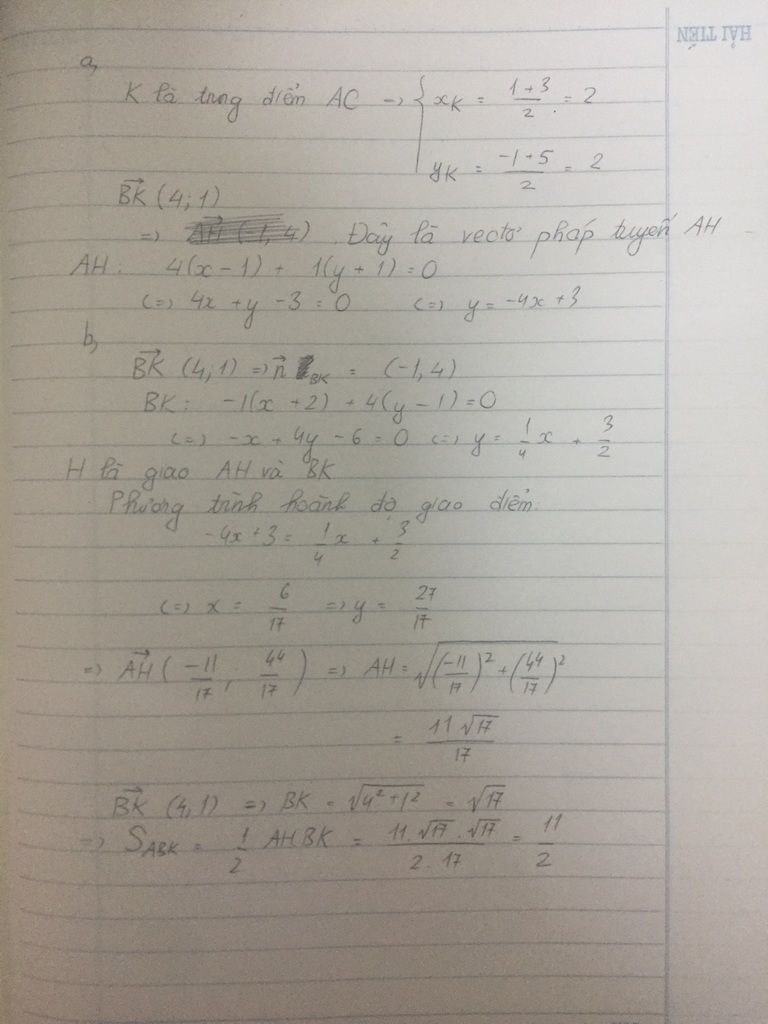 HẢI TIẾN
a,
K là trung điểm AC => { xK = (1+3)/2 = 2
yK = (-1+5)/2 = 2
BK→ (4;1)
=> . Đây là vectơ pháp tuyến AH
AH: 4(x-1) + 1(y+1) = 0
<=> 4x + y - 3 = 0 <=> y = -4x + 3
b,
BK→ (4;1) => n→ BK = (-1,4)
BK: -1(x+2) + 4(y-1) = 0
<=> -x + 4y - 6 = 0 <=> y = 1/4 x + 3/2
H là giao AH và BK
Phương trình hoành độ giao điểm:
-4x+3 = 1/4 x + 3/2
<=> x = 6/17 => y = 27/17
=> AH→ (-11/17; 44/17) => AH = √((-11/17)² + (44/17)²)
= 11√17/17
BK→ (4,1) => BK = √(4²+1²) = √17
=> SABK = 1/2 AH.BK = (11.√17.√17)/(2.17) = 11/2